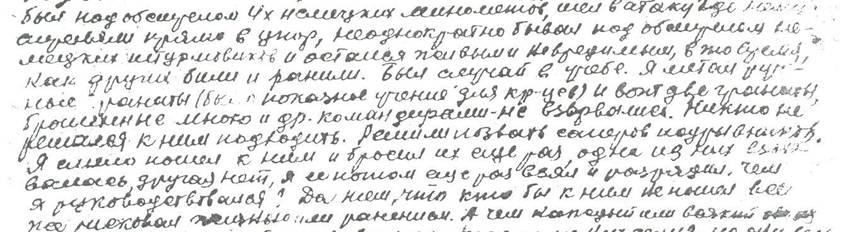 был под обстрелом 4х немецких миномётов, шел в атаку где нем.
стреляли прямо в упор, неоднократно бывал под обстрелом не-
мецких штурмовиков и остался живым и невредимым, в то время,
как других били и ранили. Был случай в учебе. Я метал руч-
ные гранаты (было показное учение для кр-цев) и вот две гранаты,
брошенные мною и др. командирами не взорвались. Никто не
решался к ним подходить. Решили позвать саперов подрывников.
Я смело пошел к ним и бросил их еще раз, одна из них взор-
валась, другая нет, я ее потом еще раз взял и разрядил. Чем
я руководствовался? Да тем, что кто бы к ним не пошел все
же рисковал жизнью или ранением. А чем каждый или всякий